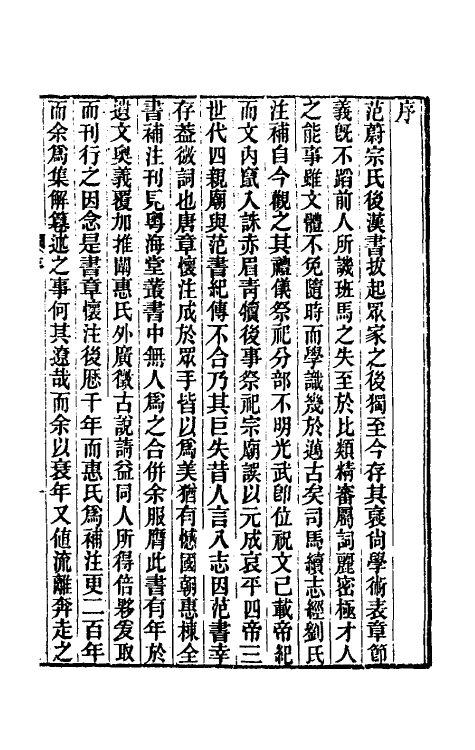 序
范蔚宗氏後漢書拔起眾家之後獨至今存其襃尙學術表章節
義旣不蹈前人所譏班馬之失至於比類精審屬詞麗密極才人
之能事雖文體不免隨時而學識幾於邁古矣司馬續志經劉氏
注補自今觀之其禮儀祭祀分部不明光武卽位祝文已載帝紀
而文內竄入誅赤眉靑犢後事祭祀宗廟誤以元成哀平四帝三
世代四親廟與范書紀傳不合乃其巨失昔人言八志因范書幸
存葢微詞也唐章懷注成於眾手皆以爲美猶有憾國朝惠棟全
書補注刊見粵海堂叢書中無人爲之合併余服膺此書有年於
遺文奧義覆加推闡惠氏外廣徵古說請益同人所得倍夥爰取
而刊行之因念是書章懷注後歷千年而惠氏爲補注更二百年
而余爲集解纂述之事何其遼哉而余以衰年又値流離奔走之
序